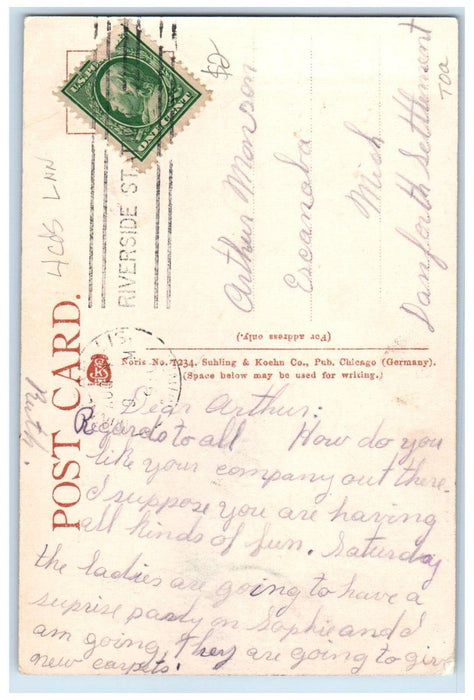 U.S. POSTAGE
ONE CENT
RIVERSIDE ST
$2
TOA
4COS LNN
Arthur Monson
Escanaba
Mich
Danforth Settlement
POST CARD.
(For address only.)
Noris No. 1234. Suhling & Koehn Co., Pub. Chicago (Germany).
(Space below may be used for writing.)
Dear Arthur:
Regards to all How do you
like your company out there.
I suppose you are having
all kinds of fun. Saturday
the ladies are going to have a
suprise party on Sophie and I
am going. They are going to give
new carpets.
Ruth.